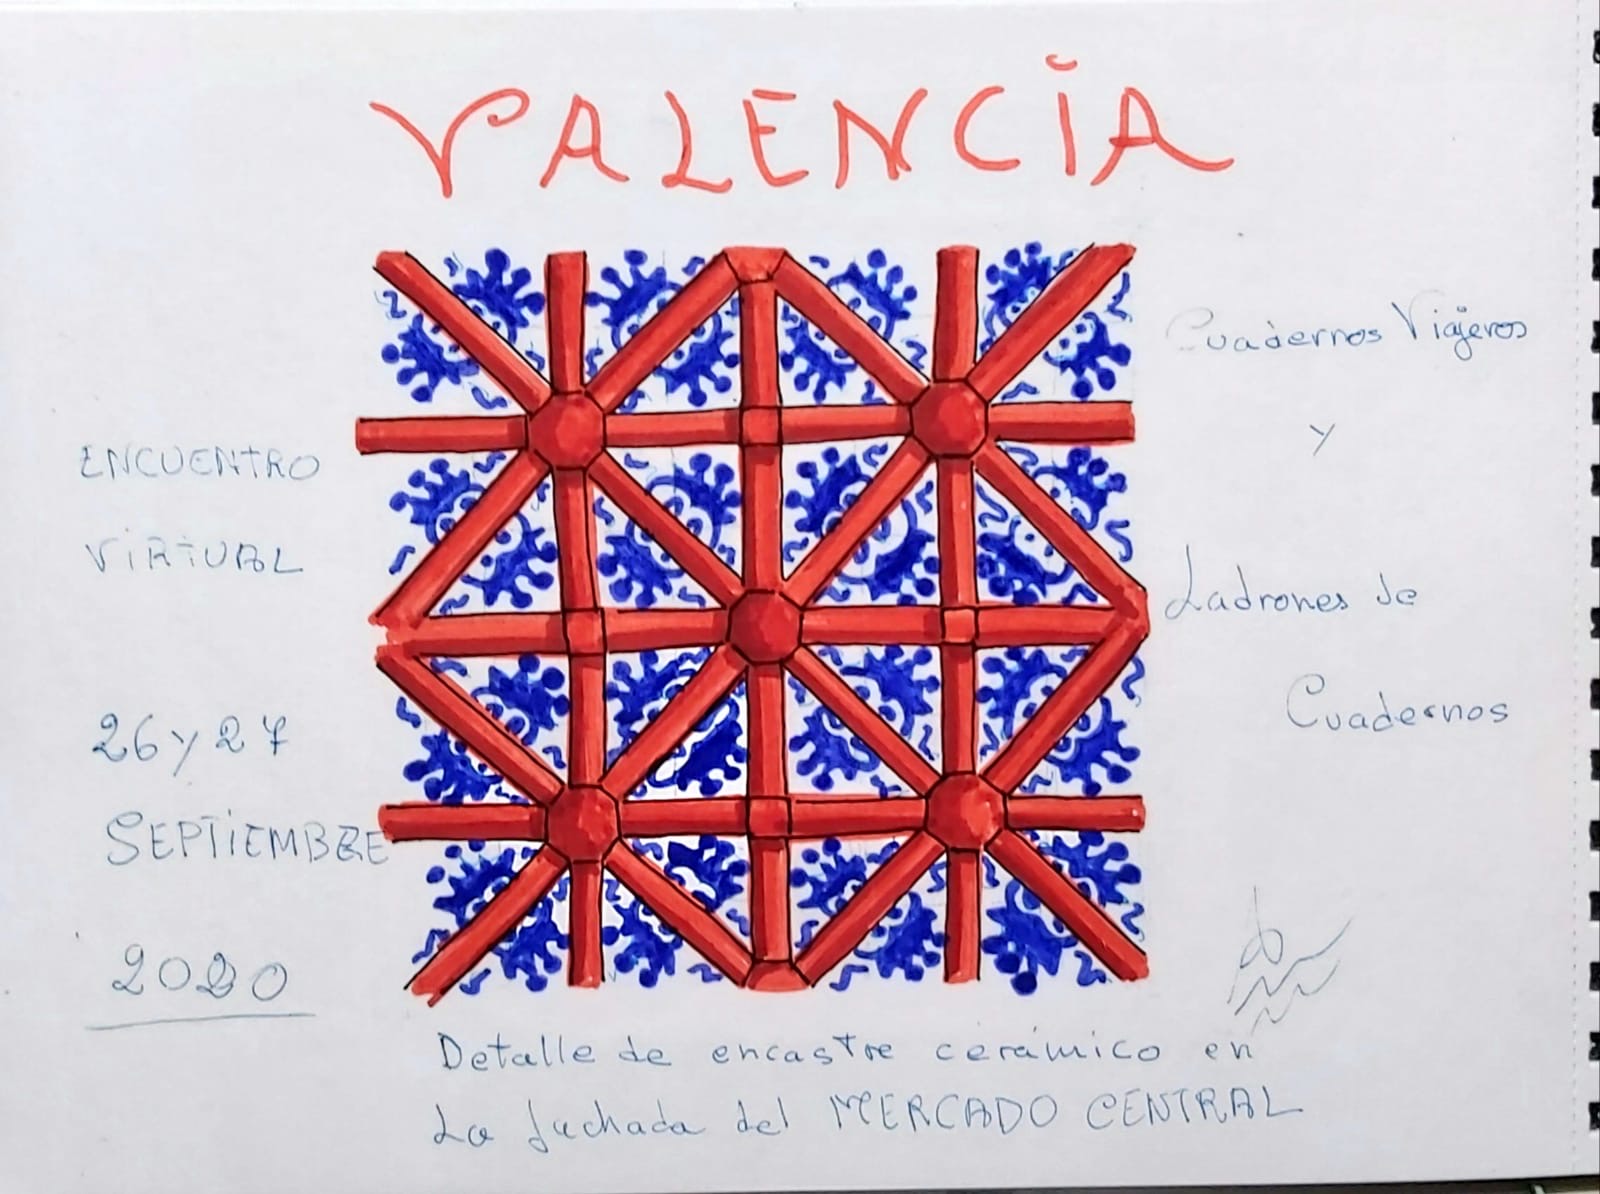 VALENCIA
ENCUENTRO
VIRTUAL
26 y 27
SEPTIEMBRE
2020
Cuadernos Viajeros
y
Ladrones de
Cuadernos
Detalle de encastre cerámico en
La fachada del MERCADO CENTRAL